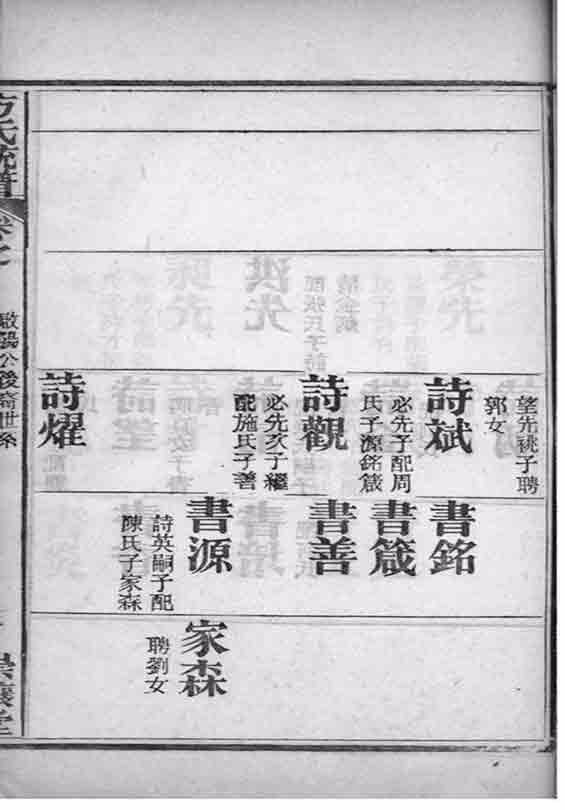 望先祧子聘
郭女
詩斌
必先子配周
氏子源銘箴
詩觀
必先次子繼
配施氏子善
詩燿
書銘
書箴
書善
書源
詩英嗣子配
陳氏子家森
家森
聘劉女
方氏統譜
卷七
陽公後裔世系